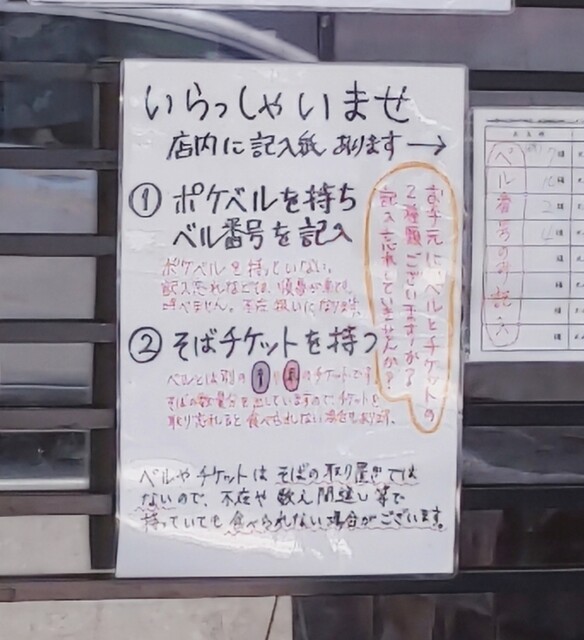 いらっしゃいませ
店内に記入紙あります→
① ポケベルを持ち
ベル番号を記入
ポケベルを持っていない。
記入忘れなどでは、順番が来ても
呼べません。不在扱いになります。
お手元に、ベルとチケットの
2種類ございますか？
記入忘れしていませんか？
② そばチケットを持つ
ベルとは別の のチケットです
そばの数量分を出していますので、チケットを
取り忘れると食べられない場合もあります。
ベルやチケットはそばの取り置きでは
ないので、不在や数え間違い等で
持っていても食べられない場合がございます。
ベル番号のみ記入
様
様
様
様
様
様
様